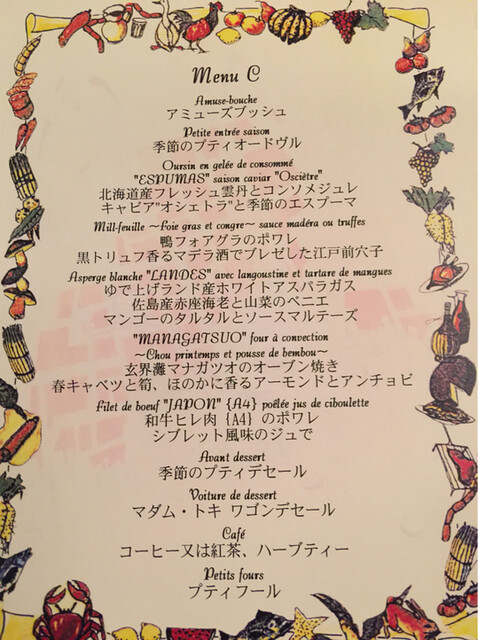 Menu C
Amuse-bouche
アミューズブッシュ
Petite entrée saison
季節のプティオードヴル
Oursin en gelée de consommé
"ESPUMAS" saison caviar "Osciètre"
北海道産フレッシュ雲丹とコンソメジュレ
キャビア"オシェトラ"と季節のエスプーマ
Mill-feuille ～Foie gras et congre～ sauce madéra ou truffes
鴨フォアグラのポワレ
黒トリュフ香るマデラ酒でブレゼした江戸前穴子
Asperge blanche "LANDES" avec langoustine et tartare de mangues
ゆで上げランド産ホワイトアスパラガス
佐島産赤座海老と山菜のベニエ
マンゴーのタルタルとソースマルテーズ
"MANAGATSUO" four à convection
～Chou printemps et pousse de bembou～
玄界灘マナガツオのオーブン焼き
春キャベツと筍、ほのかに香るアーモンドとアンチョビ
Filet de boeuf "JAPON" {A4} poêlée jus de ciboulette
和牛ヒレ肉 {A4} のポワレ
シブレット風味のジュで
Avant dessert
季節のプティデセール
Voiture de dessert
マダム・トキ ワゴンデセール
Café
コーヒー又は紅茶、ハーブティー
Petits fours
プティフール